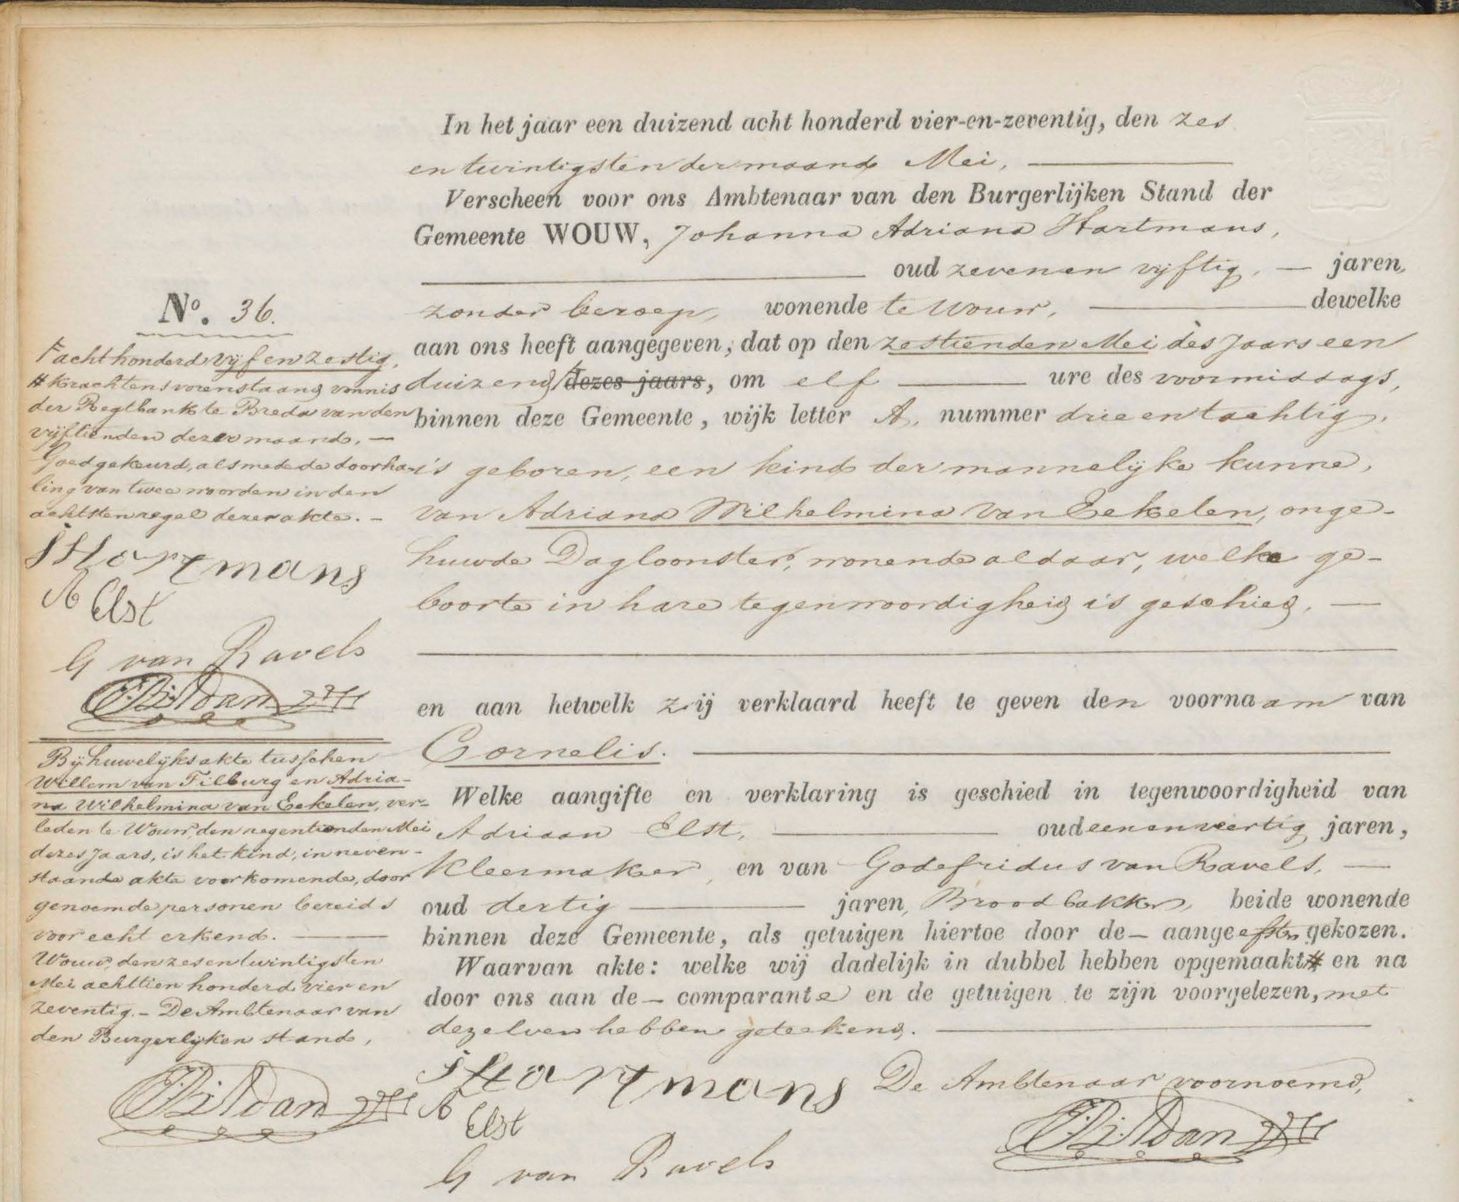 In het jaar een duizend acht honderd vier-en-zeventig, den zes
en twintigsten der maand Mei,
Verscheen voor ons Ambtenaar van den Burgerlijken Stand der
Gemeente WOUW, Johanna Adriana Hartmans,
oud zeven en vijftig, jaren,
zonder beroep, wonende te Wouw, dewelke
aan ons heeft aangegeven, dat op den zestienden Mei des jaars een
duizend dezes jaars, om elf ure des voormiddags,
binnen deze Gemeente, wijk letter A, nummer drie en tachtig,
is geboren, een kind der mannelijke kunne,
van Adriana Wilhelmina van Eekelen, onge-
huwde Dagloonster, wonende aldaar, welke ge-
boorte in hare tegenwoordigheid is geschied,
en aan hetwelk zij verklaard heeft te geven den voornaam van
Cornelis.
Welke aangifte en verklaring is geschied in tegenwoordigheid van
Adriaan Elst, oud een en veertig jaren,
Kleermaker, en van Godefridus van Ravels,
oud dertig jaren, Broodbakker, beide wonende
binnen deze Gemeente, als getuigen hiertoe door de aangeefster gekozen.
Waarvan akte: welke wij dadelijk in dubbel hebben opgemaakt # en na
door ons aan de comparante en de getuigen te zijn voorgelezen, met
dezelven hebben geteekend.
JHartmans
A Elst
G van Ravels
De Ambtenaar voornoemd,
No. 36.
achthonderd vijf en zestig,
# Krachtens vorenstaand vonnis
der Regtbank te Breda van den
vijftienden dezer maand.
Goedgekeurd, alsmede de doorha-
ling van twee woorden in den
achtsten regel dezer akte.
JHartmans
A Elst
G van Ravels
Bij huwelijksakte tusschen
Willem van Tilburg en Adria-
na Wilhelmina van Eekelen, ver-
leden te Wouw den negentienden Mei
dezes jaars, is het kind, in neven-
staande akte voorkomende, door
genoemde personen bereids
voor echt erkend.
Wouw, den zes en twintigsten
Mei achttien honderd vier en
zeventig. De Ambtenaar van
den Burgerlijken stand,